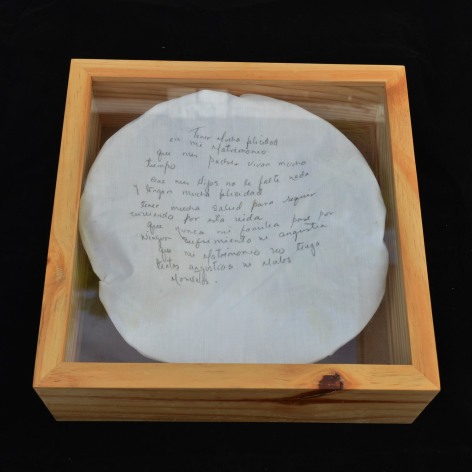 Tener Mucha flicidad
en mi Matrimonio
que mis padres vivan mucho
tiempo
que mis Hijos no le falte nada
y tengan mucha flicidad
tener mucha salud para seguir
corriendo por esta vida
que nunca mi familia pase por
ningun sufrimiento ni angustia
que mi Matrimonio no tenga
tantas angustias ni Malos
Momentos.